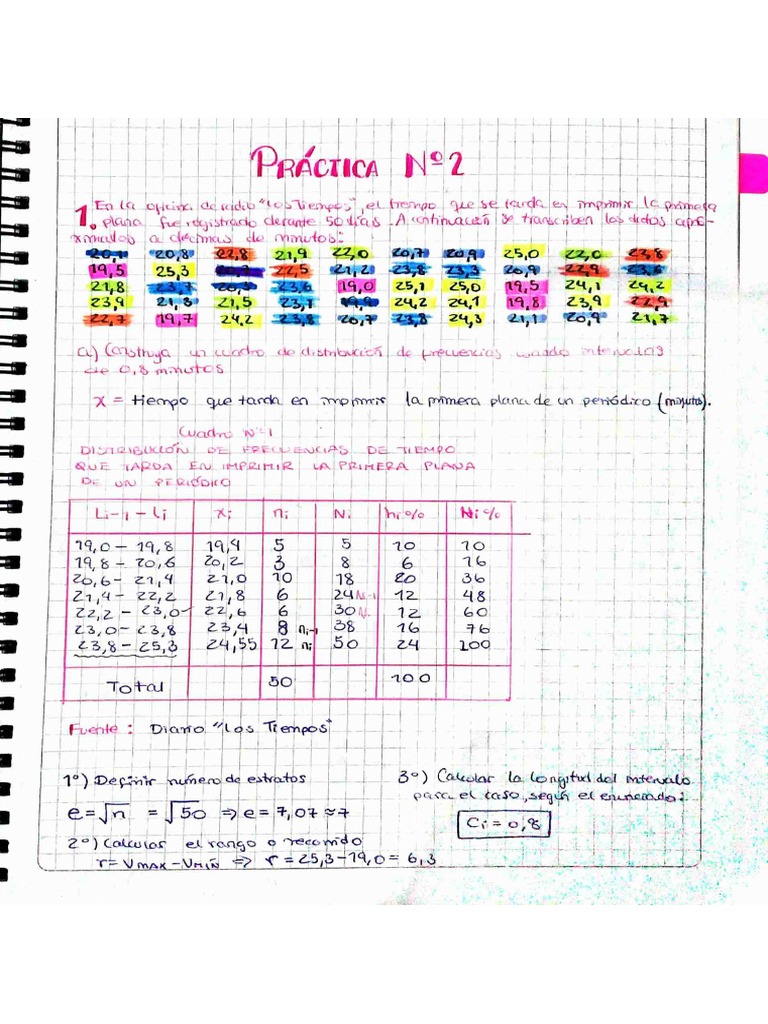 PRÁCTICA Nº2
1. En la oficina de "Los Tiempos", el tiempo que se tarda en imprimir la primera
plana fue registrado durante 50 días. A continuación se transcriben los datos apro-
ximados a décimas de minutos:
20,1 20,8 22,8 21,9 22,0 20,7 20,9 25,0 22,0 23,8
19,5 25,3 20,7 22,5 21,2 23,8 23,3 20,9 22,9 23,6
21,8 23,7 20,3 23,6 19,0 25,1 25,0 19,5 24,1 24,2
23,9 21,3 21,5 23,1 19,9 24,2 24,1 19,8 23,9 22,9
22,7 19,7 24,2 23,8 20,7 23,8 24,3 21,1 20,9 21,7
a) Construya un cuadro de distribución de frecuencias usando intervalos
de 0,8 minutos
x = tiempo que tarda en imprimir la primera plana de un periódico (minutos).
Cuadro Nº1
DISTRIBUCIÓN DE FRECUENCIAS DE TIEMPO
QUE TARDA EN IMPRIMIR LA PRIMERA PLANA
DE UN PERIÓDICO
Li-1 - Li xi ni Ni hi% Hi%
19,0 - 19,8 19,4 5 5 10 10
19,8 - 20,6 20,2 3 8 6 16
20,6 - 21,4 21,0 10 18 20 36
21,4 - 22,2 21,8 6 24 Ni-1 12 48
22,2 - 23,0 22,6 6 30 Ni 12 60
23,0 - 23,8 23,4 8 ni-1 38 16 76
23,8 - 25,3 24,55 12 ni 50 24 100
Total 50 100
Fuente: Diario "Los Tiempos"
1º) Definir número de estratos
e = √n = √50 ⇒ e = 7,07 ≈ 7
2º) Calcular el rango o recorrido
r = VMAX - VMIN ⇒ r = 25,3 - 19,0 = 6,3
3º) Calcular la longitud del intervalo
para el caso, según el enunciado:
Ci = 0,8